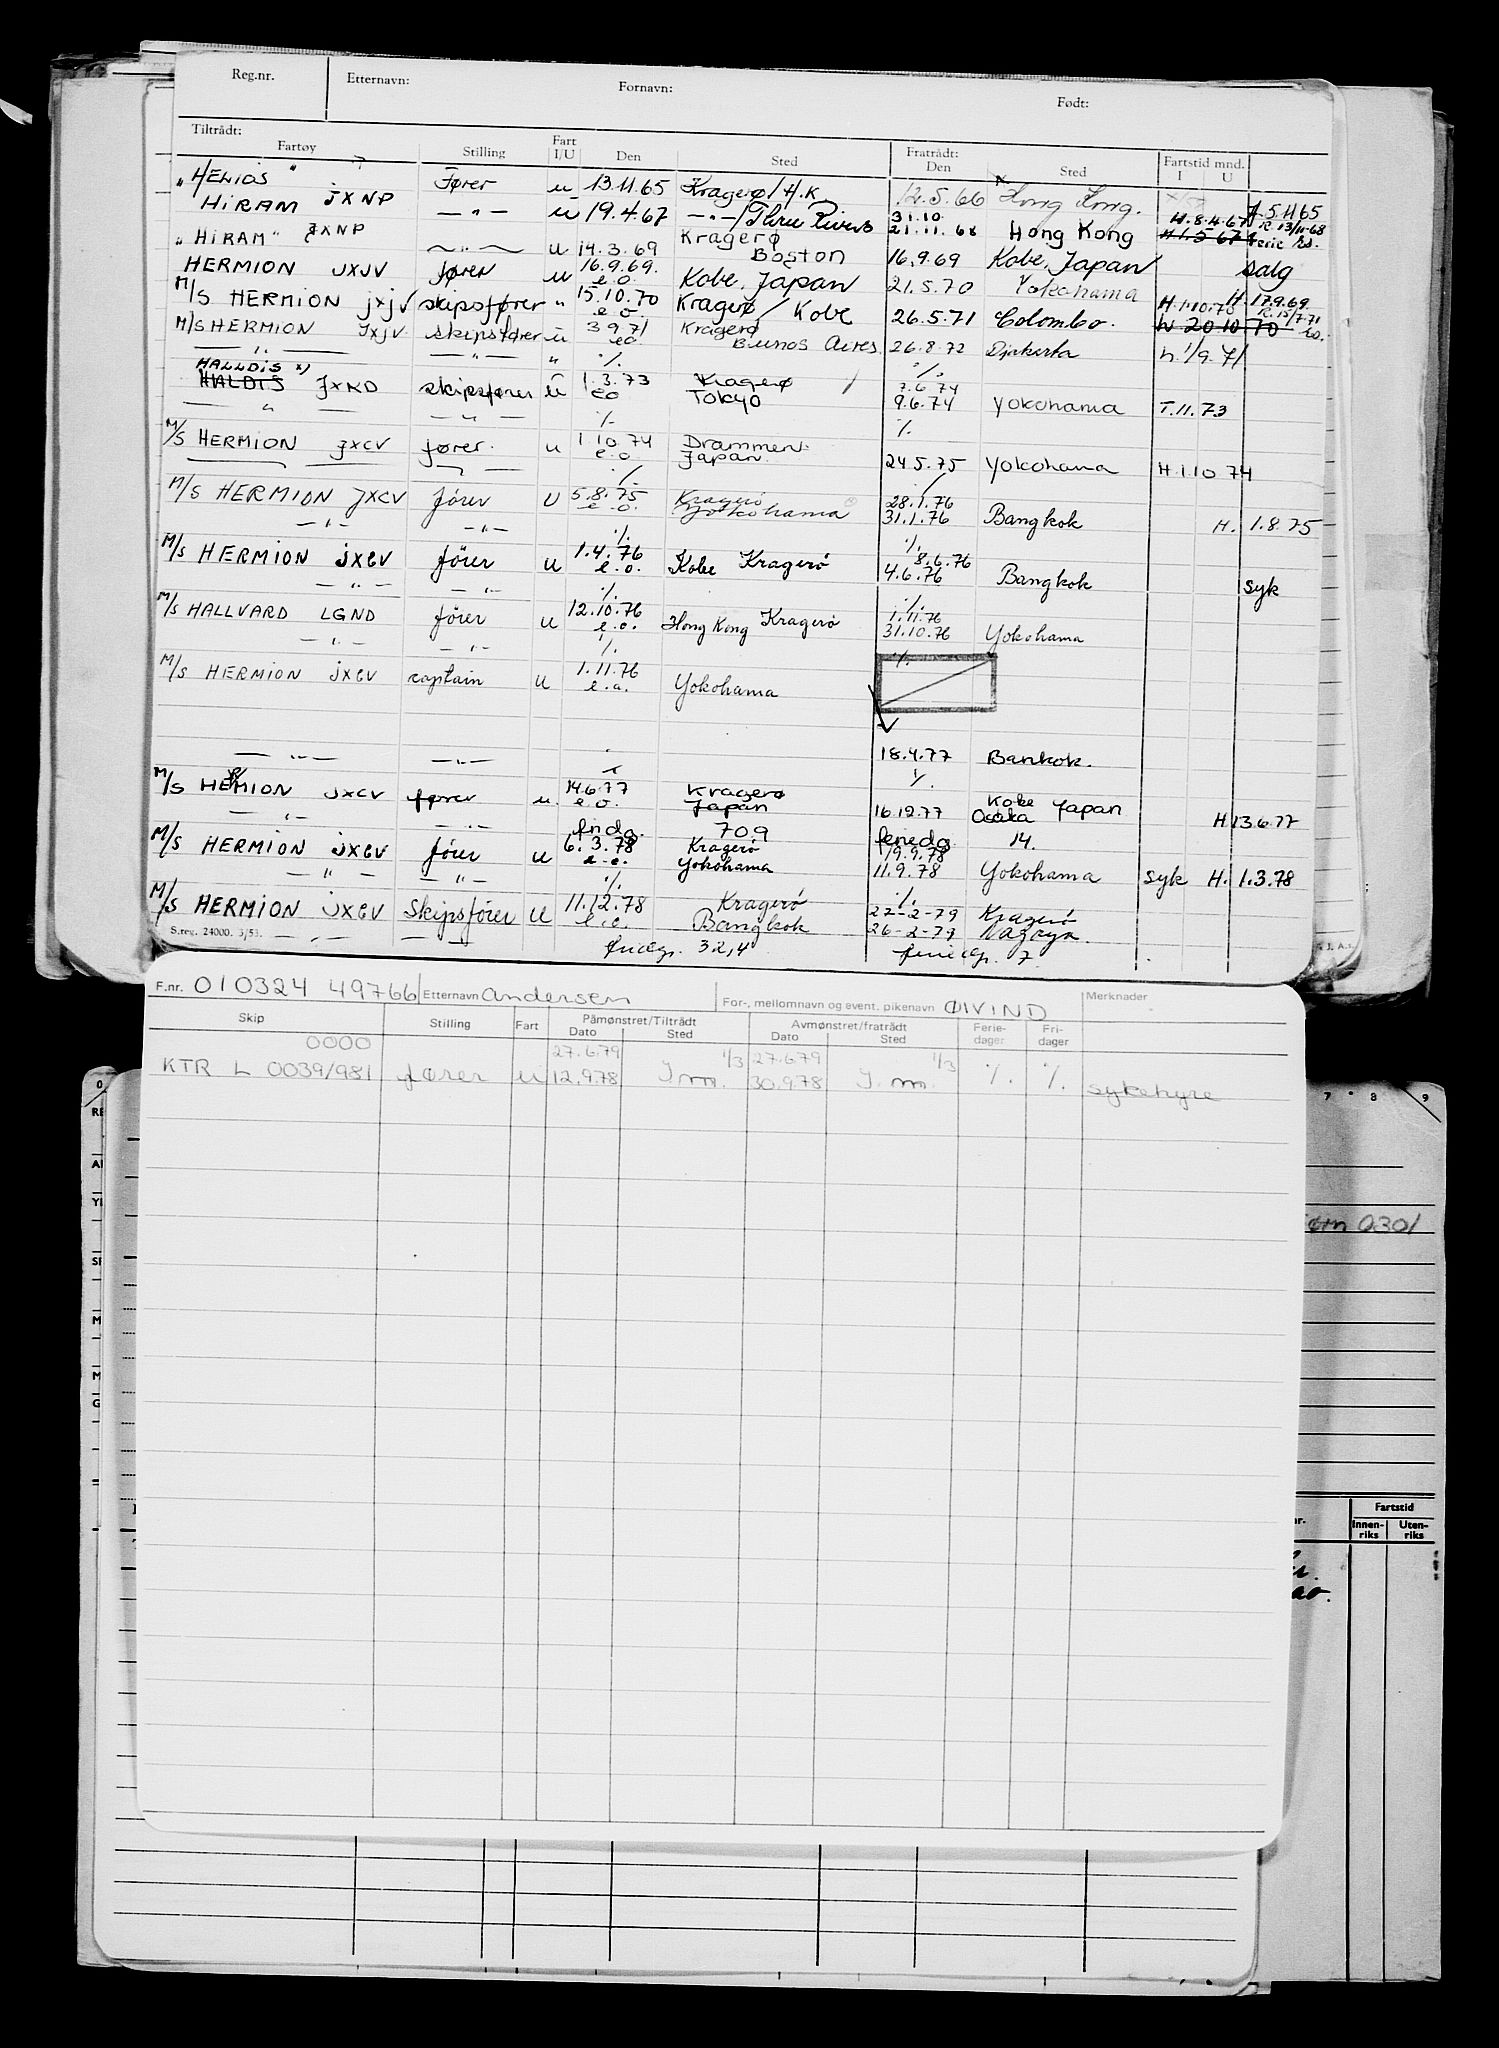 Reg.nr. Etternavn: Fornavn: Født:
Tiltrådt: Fratrådt:
Fartøy Stilling Fart I/U Den Sted Den Sted Fartstid mnd. I U
"HELIOS" Fører u 13.11.65 Kragerø/H.K 12.5.66 Hong Kong. f. 5.11.65
HIRAM JXNP — " — u 19.4.67 — " — /Three Rivers 31.10 H.8.4.67 R. 13/11-68
21.11.68 Hong Kong H 1.5 67 ferie
"HIRAM" JXNP — " — u 14.3.69 Kragerø Boston 16.9.69 Kobe, Japan salg
HERMION JXJV fører u 16.9.69. e.o. Kobe, Japan 21.5.70 Yokohama H. 17.9.69
M/S HERMION JXJV skipsfører " 15.10.70 e.o. Kragerø / Kobe 26.5.71 Colombo. H.1.10.70 R. 15/7.71
h 20 10 70
M/S HERMION JXJV skipsfører u 3 9 71 eo Kragerø Buenos Aires 26.8.72 Djakarta h. 1/9.71
— " — — " — " ·/. ·/.
HALLDIS x)
HALDIS JXKD skipsfører u 1.3.73 eo Kragerø Tokyo 7.6.74
9.6.74 Yokohama T.11.73
— " — — " — ·/. ·/.
M/S HERMION JXCV fører. u 1.10.74 e.o. Drammen. Japan. 24.5.75 Yokohama H.1.10 74
·/. ·/.
M/S HERMION JXCV fører U 5.8.75 e.o. Kragerø Yokohama 28.1.76
31.1.76 Bangkok H. 1.8.75
— " — — " — ·/. ·/.
M/S HERMION JXCV fører u 1.4.76 e.o. Kobe Kragerø 8.6.76
4.6.76 Bangkok syk
— " — — " — ·/. ·/.
M/S HALLVARD LGND fører u 12.10.76 e.o. Hong Kong Kragerø 1.11.76
31.10.76 Yokohama
— " — — " — ·/. ·/.
M/S HERMION JXCV captain u 1.11.76 e.o. Yokohama
— " — — " — 18.4.77 Bankok.
M/S HERMION JXCV fører u. 14.6.77 e.o. Kragerø Japan ·/. Kobe Japan
16.12.77 Osaka H 13.6.77
— " — — " — fridg. 70.9 feriedg. 14.
M/S HERMION JXCV fører u 6.3.78 e.o. Kragerø Yokohama 19.9.78
11.9.78 Yokohama syk H. 1.3.78
— " — — " — ·/. ·/.
M/S HERMION JXCV Skipsfører u 11.12.78 e.o. Kragerø Bangkok 27-2-79 Kragerø
26-2-79 Nagoya.
S.reg. 24000. 3/53. — " — — " — fridg. 32,4 feriedg. 7.
F.nr. 010324 49766 Etternavn Andersen For-, mellomnavn og event. pikenavn ØIVIND Merknader
Skip Stilling Fart Påmønstret/Tiltrådt Dato Sted Avmønstret/fratrådt Dato Sted Ferie-dager Fri-dager
0000 27.6.79 1/3 27.6.79 1/3
KTR L 0039/981 fører u 12.9.78 J.m. 30.9.78 J.m. ·/. ·/. sykehyre
7 8 9
0301
Fartstid
Innen-riks Uten-riks